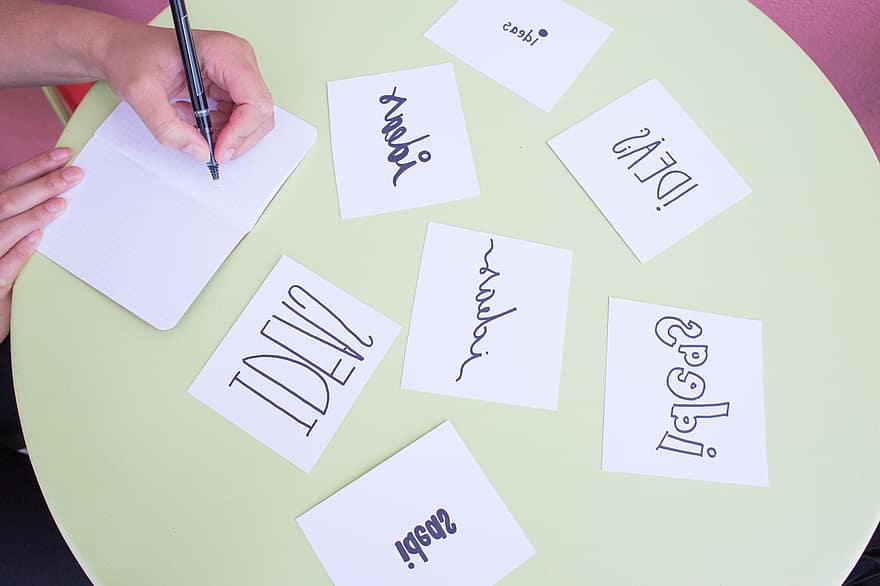 ideas
ideas
IDEAS
IDEAS
ideas
ideas
ideas